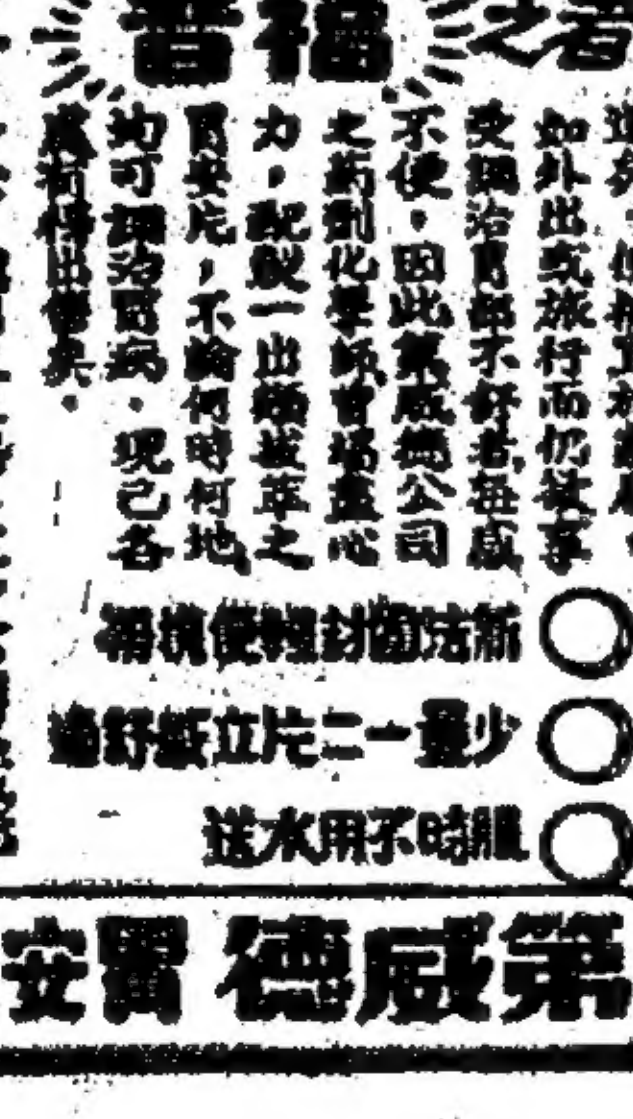 者之福音
如外出或旅行而仍被享
受調治胃部不舒者每感
不便，因此第威德公司
之藥劑化學師曾竭盡心
力，配製一出類拔萃之
胃安片，不論何時何地
均可調治胃病。現已各
藥行有出售矣。
新法錫封輕便
少量一二片立舒
服時不用水送
第威德胃安